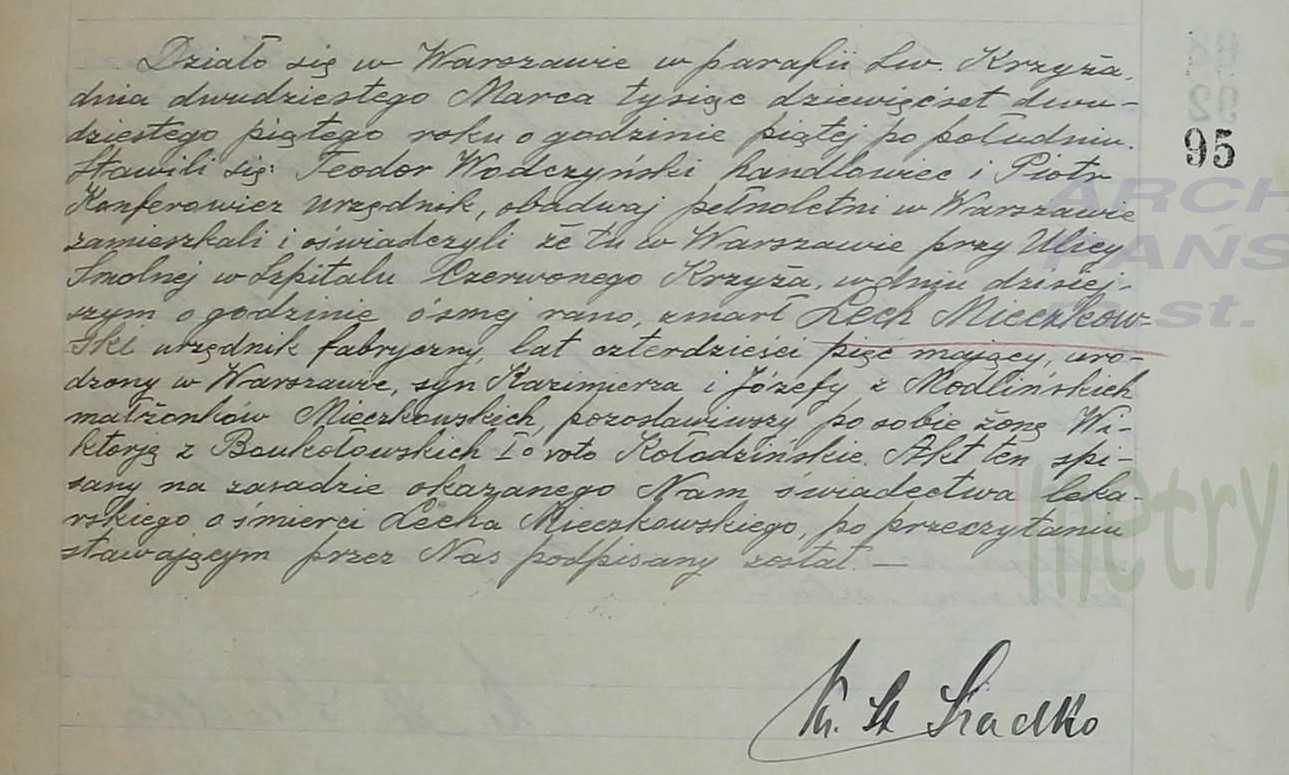 Działo się w Warszawie w parafii Św. Krzyża,
dnia dwudziestego Marca tysiąc dziewięćset dwu-
dziestego piątego roku o godzinie piątej po południu.
Stawili się: Teodor Wodczyński handlowiec i Piotr
Konferowicz urzędnik, obadwaj pełnoletni w Warszawie
zamieszkali i oświadczyli że tu w Warszawie przy Ulicy
Smolnej w Szpitalu Czerwonego Krzyża, w dniu dzisiej-
szym o godzinie ósmej rano, zmarł Lech Mieczkow-
ski urzędnik fabryczny, lat czterdzieści pięć mający, uro-
dzony w Warszawie, syn Kazimierza i Józefy z Modlińskich
małżonków Mieczkowskich, pozostawiwszy po sobie żonę Wi-
ktorję z Boukołowskich Io voto Kołodzińskie. Akt ten spi-
sany na zasadzie okazanego Nam świadectwa leka-
rskiego o śmierci Lecha Mieczkowskiego, po przeczytaniu
stawającym przez Nas podpisany został. —
Ks. St Siadko
95
ARCH
PAŃS
m.st.
metry